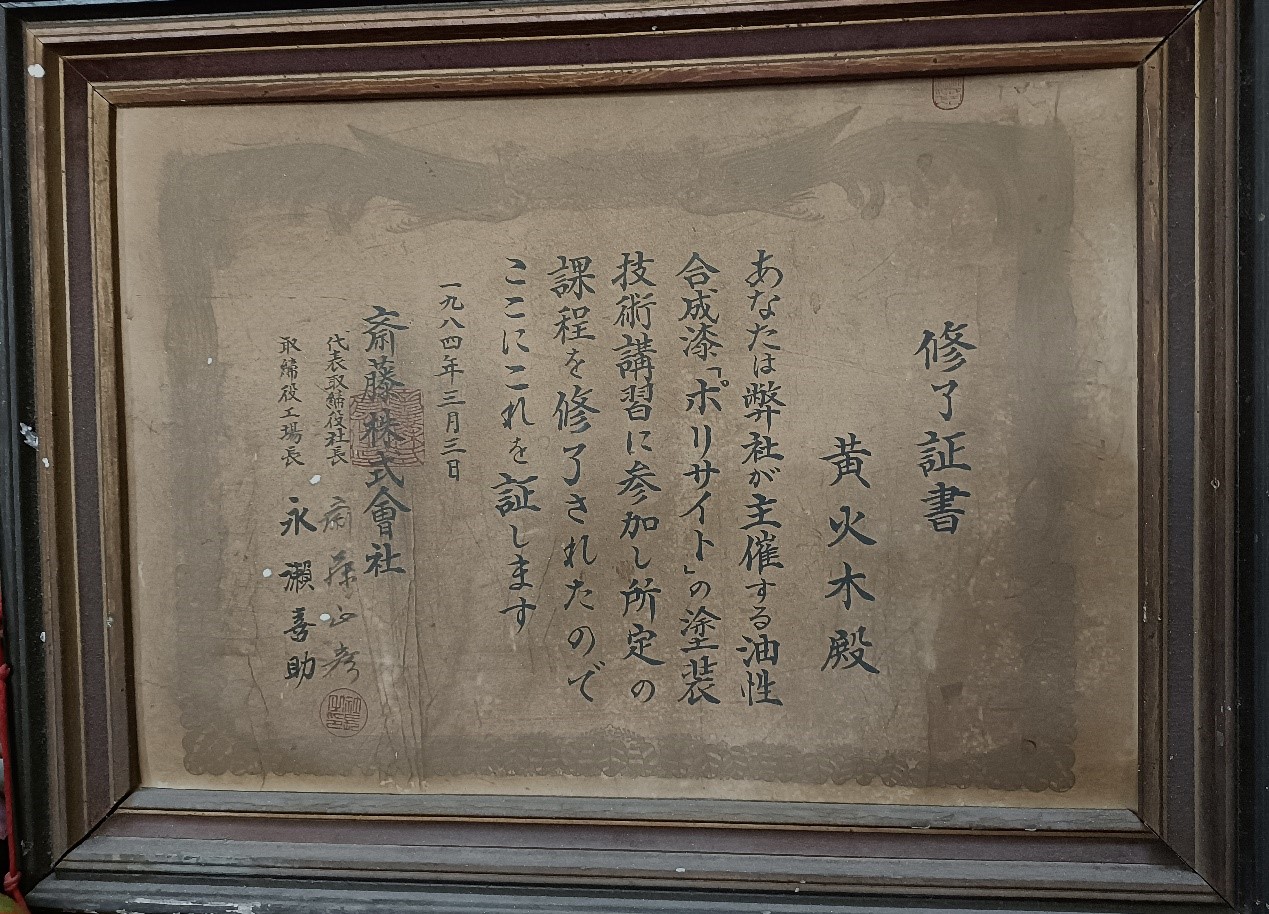 修了証書
黄火木殿
あなたは弊社が主催する油性
合成漆「ポリサイト」の塗装
技術講習に参加し所定の
課程を修了されたので
ここにこれを証します
一九八四年三月三日
斎藤株式會社
代表取締役社長 斎藤
取締役工場長 永瀬喜助